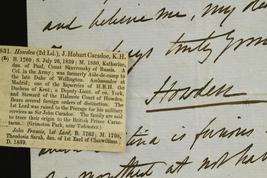 and believe me, my dear
always truly yours
Howden
851. Howden (2d Ld.), J. Hobart Caradoc, K.H.
(b) B. 1799; S. July 26, 1839; M. 1830, Katherine,
dau. of Paul, Count Skavronsky of Russia. A
Col. in the Army; was formerly Aide-de-camp to
the late Duke of Wellington. Ambassador at
Madrid, one of the Equerries of H.R.H. the
Duchess of Kent; a Deputy-Lieut. of co. York,
and Steward of the Halmote Court of Howden.
Bears several foreign orders of distinction. The
1st Lord was raised to the Peerage for his military
services as Sir John Caradoc. The family are said
to trace their origin to the British Prince Carac-
tacus. (Grimston Park, near Tadcaster.)
John Francis, 1st Lord, B. 1762; M. 1798,
Theodosia Sarah, dau. of 1st Earl of Clanwilliam;
D. 1839.
is furious
at not